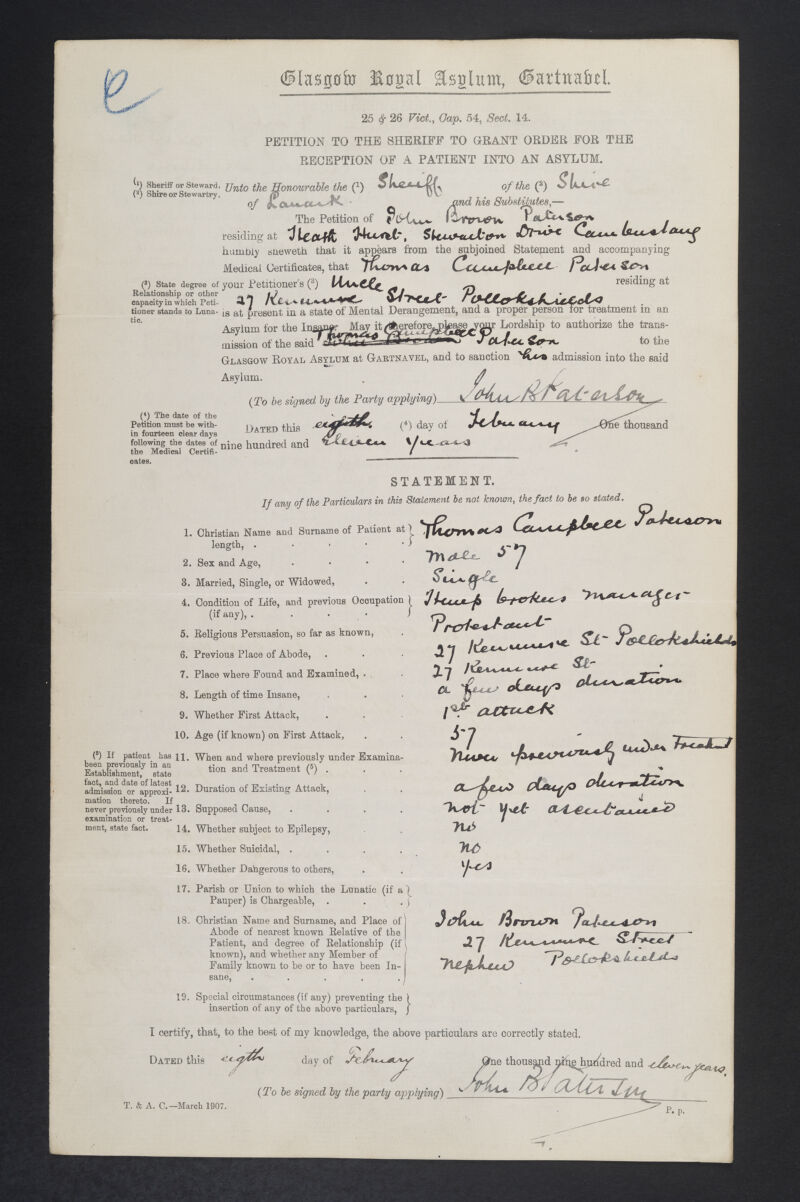 e
Glasgow Royal Asylum, Gartnavel.
25 & 26 Vict., Cap. 54, Sect. 14.
PETITION TO THE SHERIFF TO GRANT ORDER FOR THE
RECEPTION OF A PATIENT INTO AN ASYLUM.
(1) Sheriff or Steward.
(2) Shire or Stewartry.
Unto the Honourable the (1) Sheriff of the (2) Shire
of Lanark and his Substitutes,—
The Petition of John Brown Paterson
residing at Heath Hurst, Stewarton Drive Cambuslang
humbly sheweth that it appears from the subjoined Statement and accompanying
Medical Certificates, that Thomas Campbell Paterson
(3) State degree of
Relationship or other
capacity in which Peti-
tioner stands to Luna-
tic.
your Petitioner's (3) Uncle residing at
27 Kenmure Street Pollokshields
is at present in a state of Mental Derangement, and a proper person for treatment in an
Asylum for the Insane. May it therefore please your Lordship to authorize the trans-
Thomas Campbell
mission of the said John Brown Paterson to the
GLASGOW ROYAL ASYLUM at GARTNAVEL, and to sanction his admission into the said
Asylum.
(To be signed by the Party applying) John B Paterson
(4) The date of the
Petition must be with-
in fourteen clear days
following the dates of
the Medical Certifi-
cates.
DATED this eighth (4) day of February One thousand
nine hundred and eleven years
STATEMENT.
If any of the Particulars in this Statement be not known, the fact to be so stated.
1. Christian Name and Surname of Patient at length, . . . . . Thomas Campbell Paterson
2. Sex and Age, . . . . Male 57
3. Married, Single, or Widowed, . . Single
4. Condition of Life, and previous Occupation (if any), . . . . . Hemp brokers manager
5. Religious Persuasion, so far as known, . Protestant
6. Previous Place of Abode, . . . 27 Kenmure St Pollokshields
7. Place where Found and Examined, . . 27 Kenmure St
8. Length of time Insane, . . . a few days duration
9. Whether First Attack, . . . 1st attack
10. Age (if known) on First Attack, . . 57
(5) If patient has
been previously in an
Establishment, state
fact, and date of latest
admission or approxi-
mation thereto. If
never previously under
examination or treat-
ment, state fact.
11. When and where previously under Examina-
tion and Treatment (5) . . . Never previously under Treatment
12. Duration of Existing Attack, . . a few days duration
13. Supposed Cause, . . . . not yet ascertained
14. Whether subject to Epilepsy, . . no
15. Whether Suicidal, . . . . no
16. Whether Dangerous to others, . . yes
17. Parish or Union to which the Lunatic (if a
Pauper) is Chargeable, . . . .
18. Christian Name and Surname, and Place of
Abode of nearest known Relative of the
Patient, and degree of Relationship (if
known), and whether any Member of
Family known to be or to have been In-
sane, . . . . . .
John Brown Paterson
27 Kenmure Street
Nephew Pollokshields
19. Special circumstances (if any) preventing the
insertion of any of the above particulars,
I certify, that, to the best of my knowledge, the above particulars are correctly stated.
DATED this eigth day of February One thousand nine hundred and eleven years.
(To be signed by the party applying) John B Paterson
T. & A. C.—March 1907.
P. p.